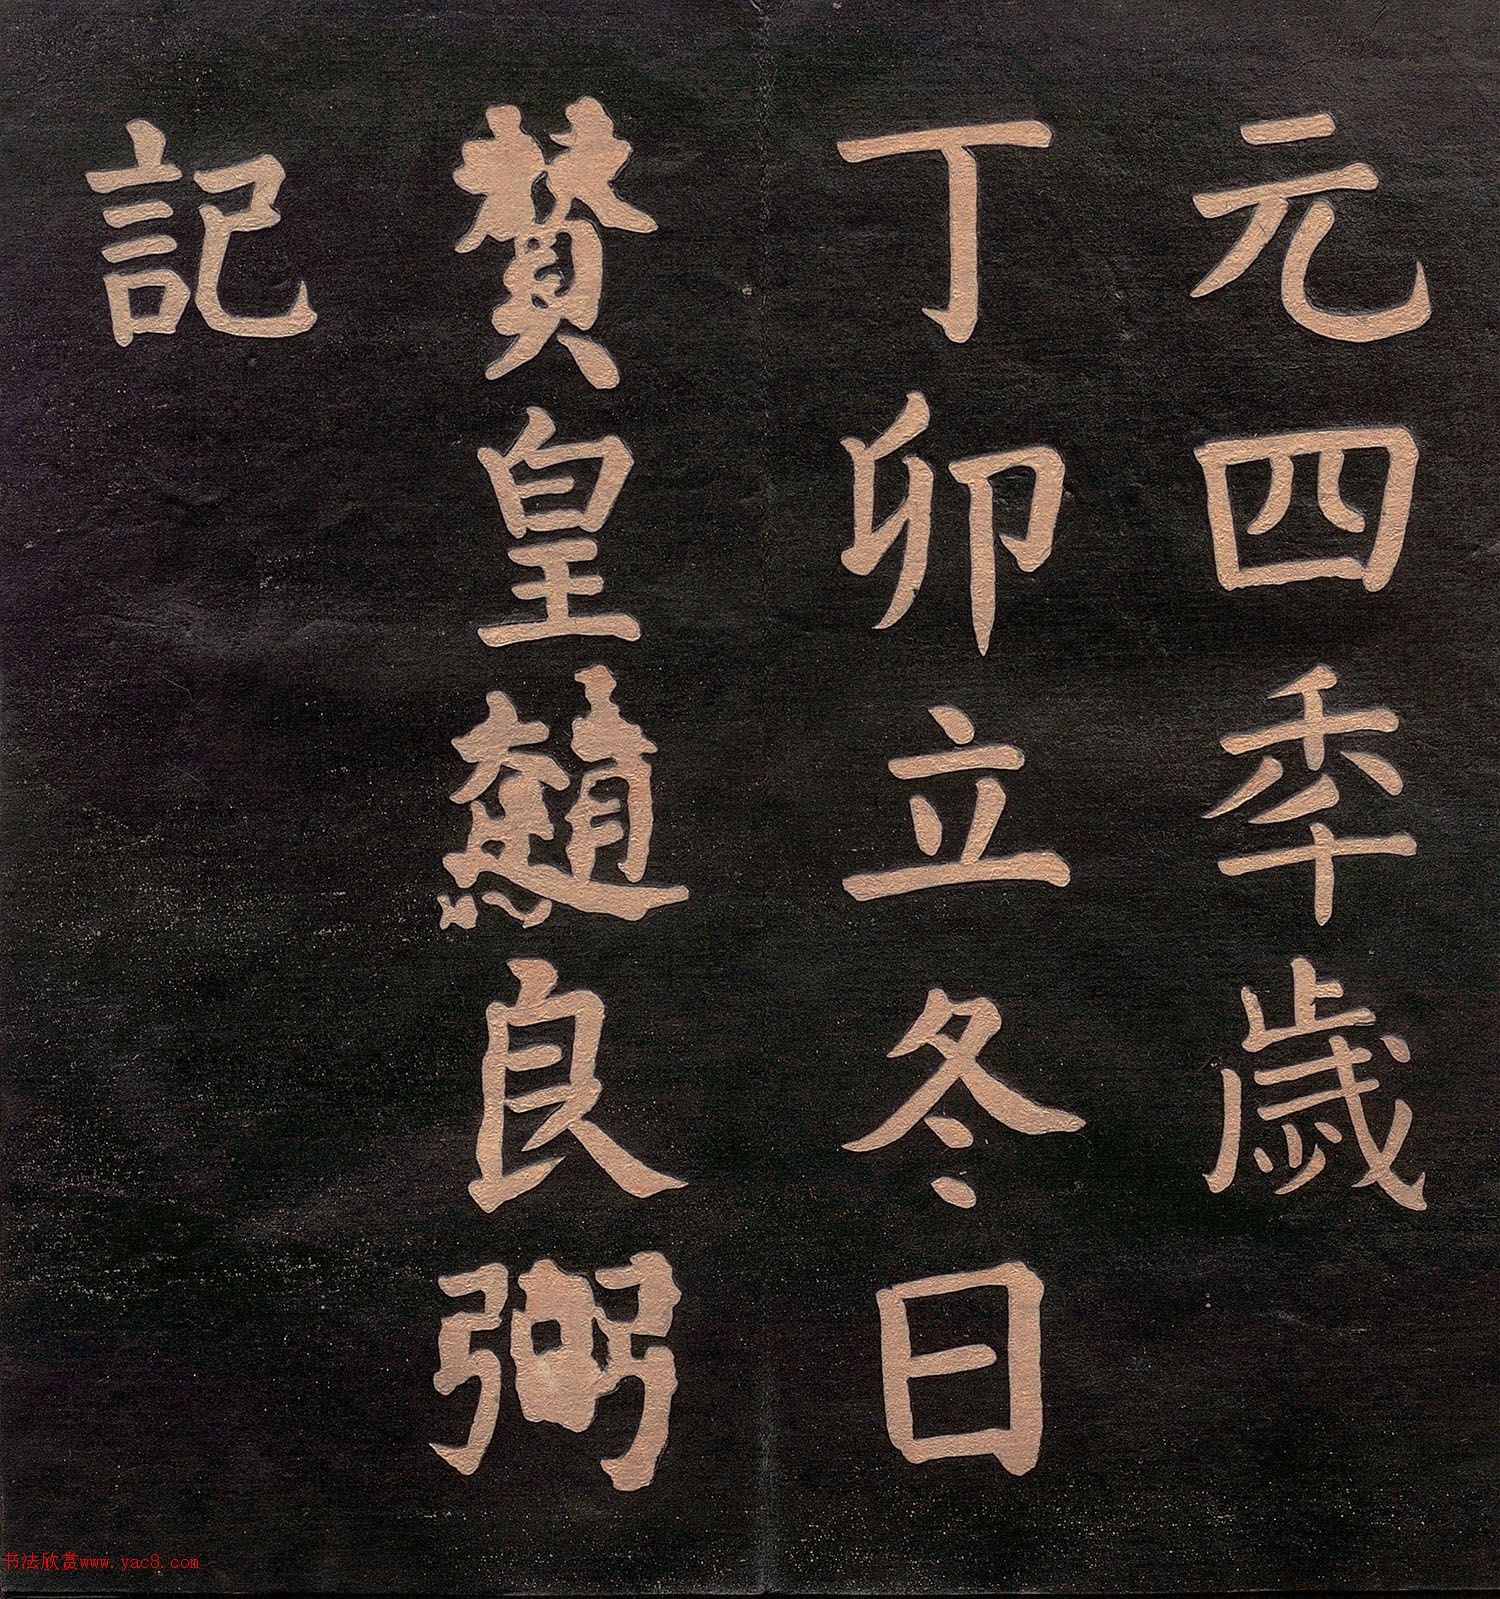 元四年歲
丁卯立冬日
贊皇趙良弼
記
书法欣赏www.yac8.com